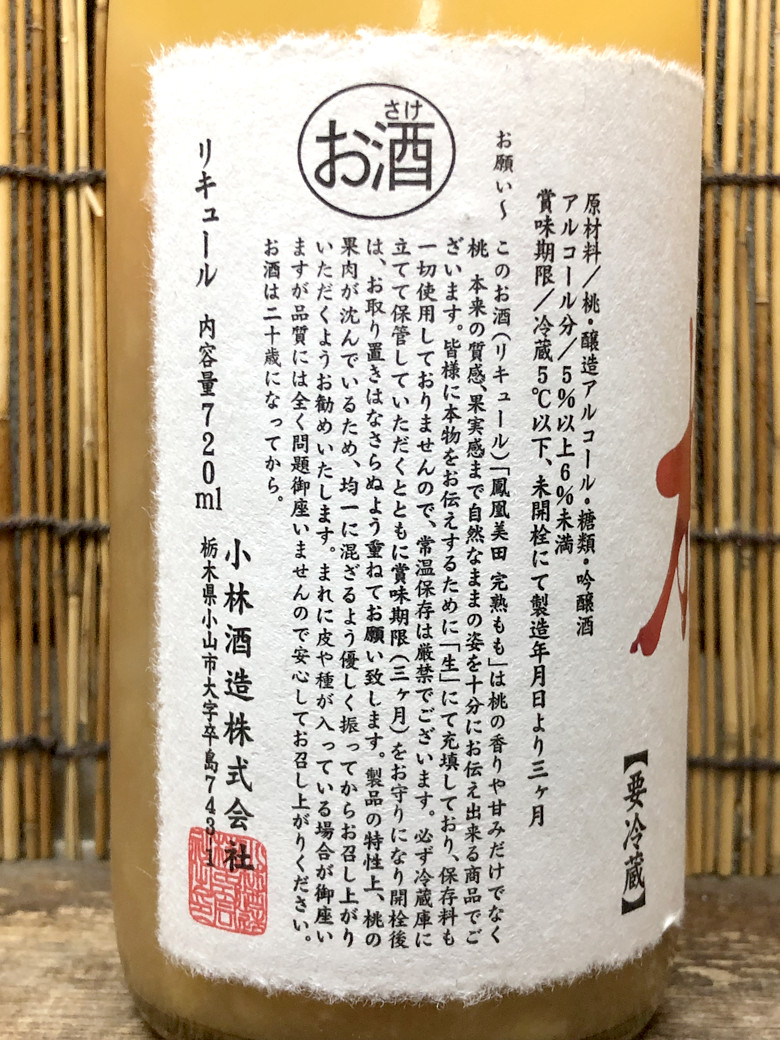 【要冷蔵】
原材料／桃・醸造アルコール・糖類・吟醸酒
アルコール分／5%以上6%未満
賞味期限／冷蔵5℃以下、未開栓にて製造年月日より三ヶ月
お願い〜 このお酒(リキュール)「鳳凰美田 完熟もも」は桃の香りや甘みだけでなく
桃 本来の質感、果実感まで自然なままの姿を十分にお伝え出来る商品でご
ざいます。皆様に本物をお伝えするために「生」にて充填しており、保存料も
一切使用しておりませんので、常温保存は厳禁でございます。必ず冷蔵庫に
立てて保管していただくとともに賞味期限(三ヶ月)をお守りになり開栓後
は、お取り置きはなさらぬよう重ねてお願い致します。製品の特性上、桃の
果肉が沈んでいるため、均一に混ざるよう優しく振ってからお召し上がり
いただくようお勧めいたします。まれに皮や種が入っている場合が御座い
ますが品質には全く問題御座いませんので安心してお召し上がりください。
お酒は二十歳になってから。
さけ
お酒
リキュール 内容量720ml
小林酒造株式会社
栃木県小山市大字卒島743-1